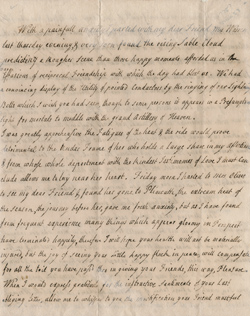 With a painfull parted with my dear Friend
last thursday evening & very soon found the rising Sable Cloud
predicting a rougher scene than those happy moments afforded us in
Pleasures of reciprocal Friendship with which the day had blest us. We had a
convincing display of the Utility of pointed Conductors by the ringing of our Lightning
Bells which I wish you had seen though to some persons it appears as a
for mortals to meddle with the grand Artillery of Heaven.
I was greatly apprehensive the Fatigues of the heat & the ride would prove
detrimental to the tender Frame of her who holds a large share in my affections
& from whose whole deportment with the kindest Sentiments of Love I must
allow me to lay near her heart. Friday
to see my dear Friends & found her gone to Plimouth, the extream heat of
the season, the journey before her, gave me fresh anxiety, but as I have found
from frequent experience many things which appear gloomy in Prospect
have terminated happily, therefore I will hope your health will not be materially
injured, but the joy of seeing your little happy flock in peace, will compensate
for all the toil you have in giving your Friends, this way, Pleasure.
When I would express gratitude for the instructive Sentiments of your last
obliging Letter, allow me to whisper to you the my dear Friend must